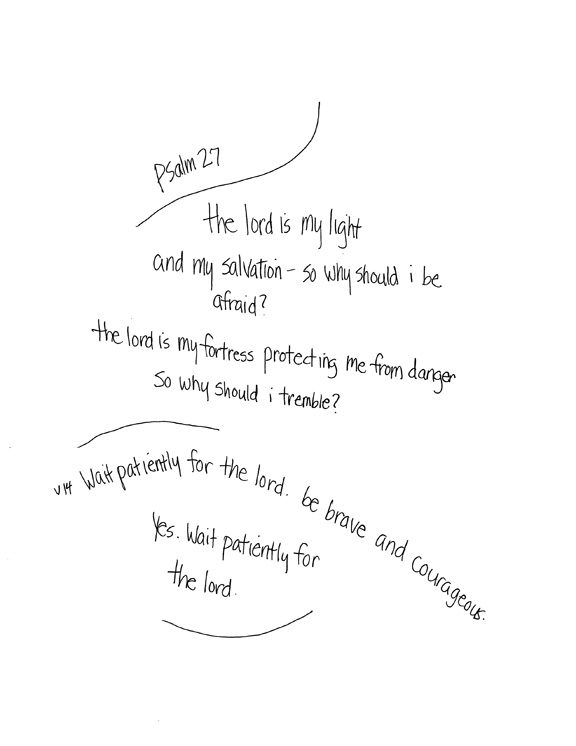 Psalm 27
the lord is my light
and my salvation - so why should i be
afraid?
the lord is my fortress protecting me from danger
so why should i tremble?
v14 Wait patiently for the lord. be brave and courageous.
Yes. Wait patiently for
the lord.